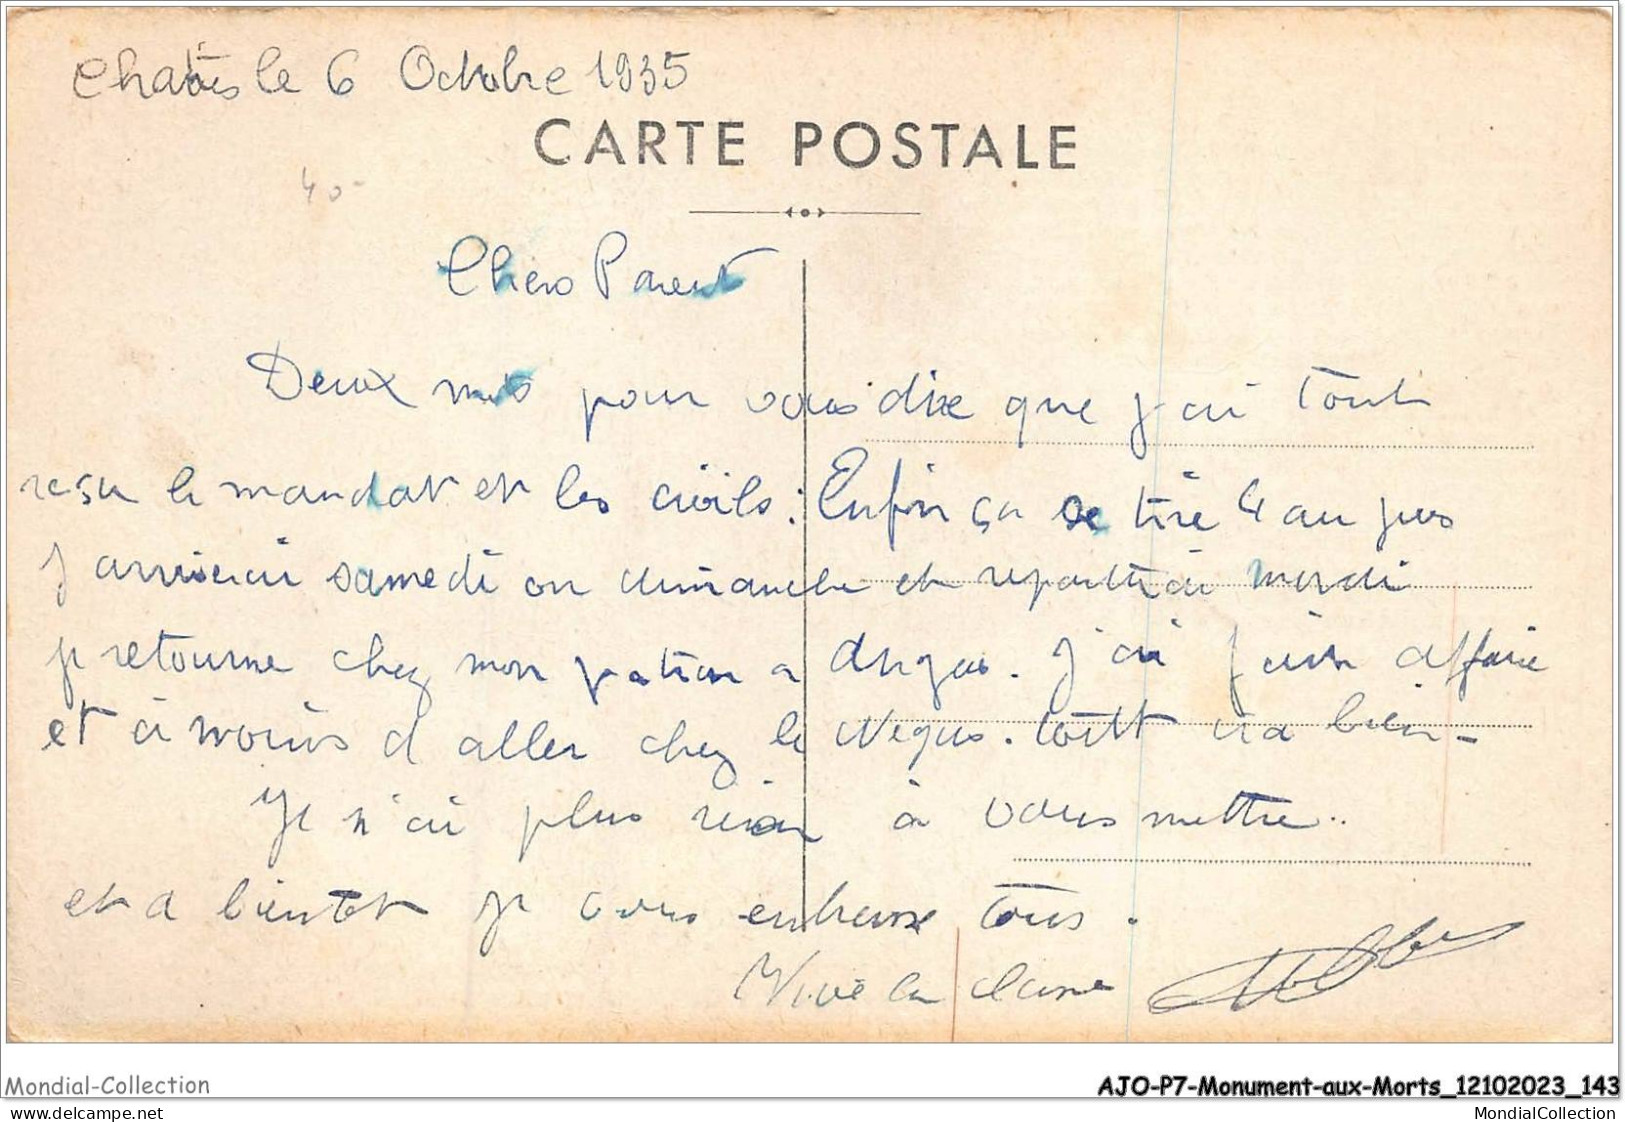 le 6 Octobre 1935
CARTE POSTALE
40-
Chers Parent
Deux mots pour vous dire que j'ai tout
reçu le mandat et les civils : Enfin ça se tire 4 au jus
j arriverai samedi ou dimanche et repartirai mardi
je retourne chez mon patron a . J'ai faire affaire
et à moins d aller chez le Negus. tout va bien -
Je n'ai plus rien à vous mettre..
et a bientot je vous embrasse tous.
Vive la classe
Mondial-Collection
AJO-P7-Monument-aux-Morts_12102023_143
www.delcampe.net
MondialCollection